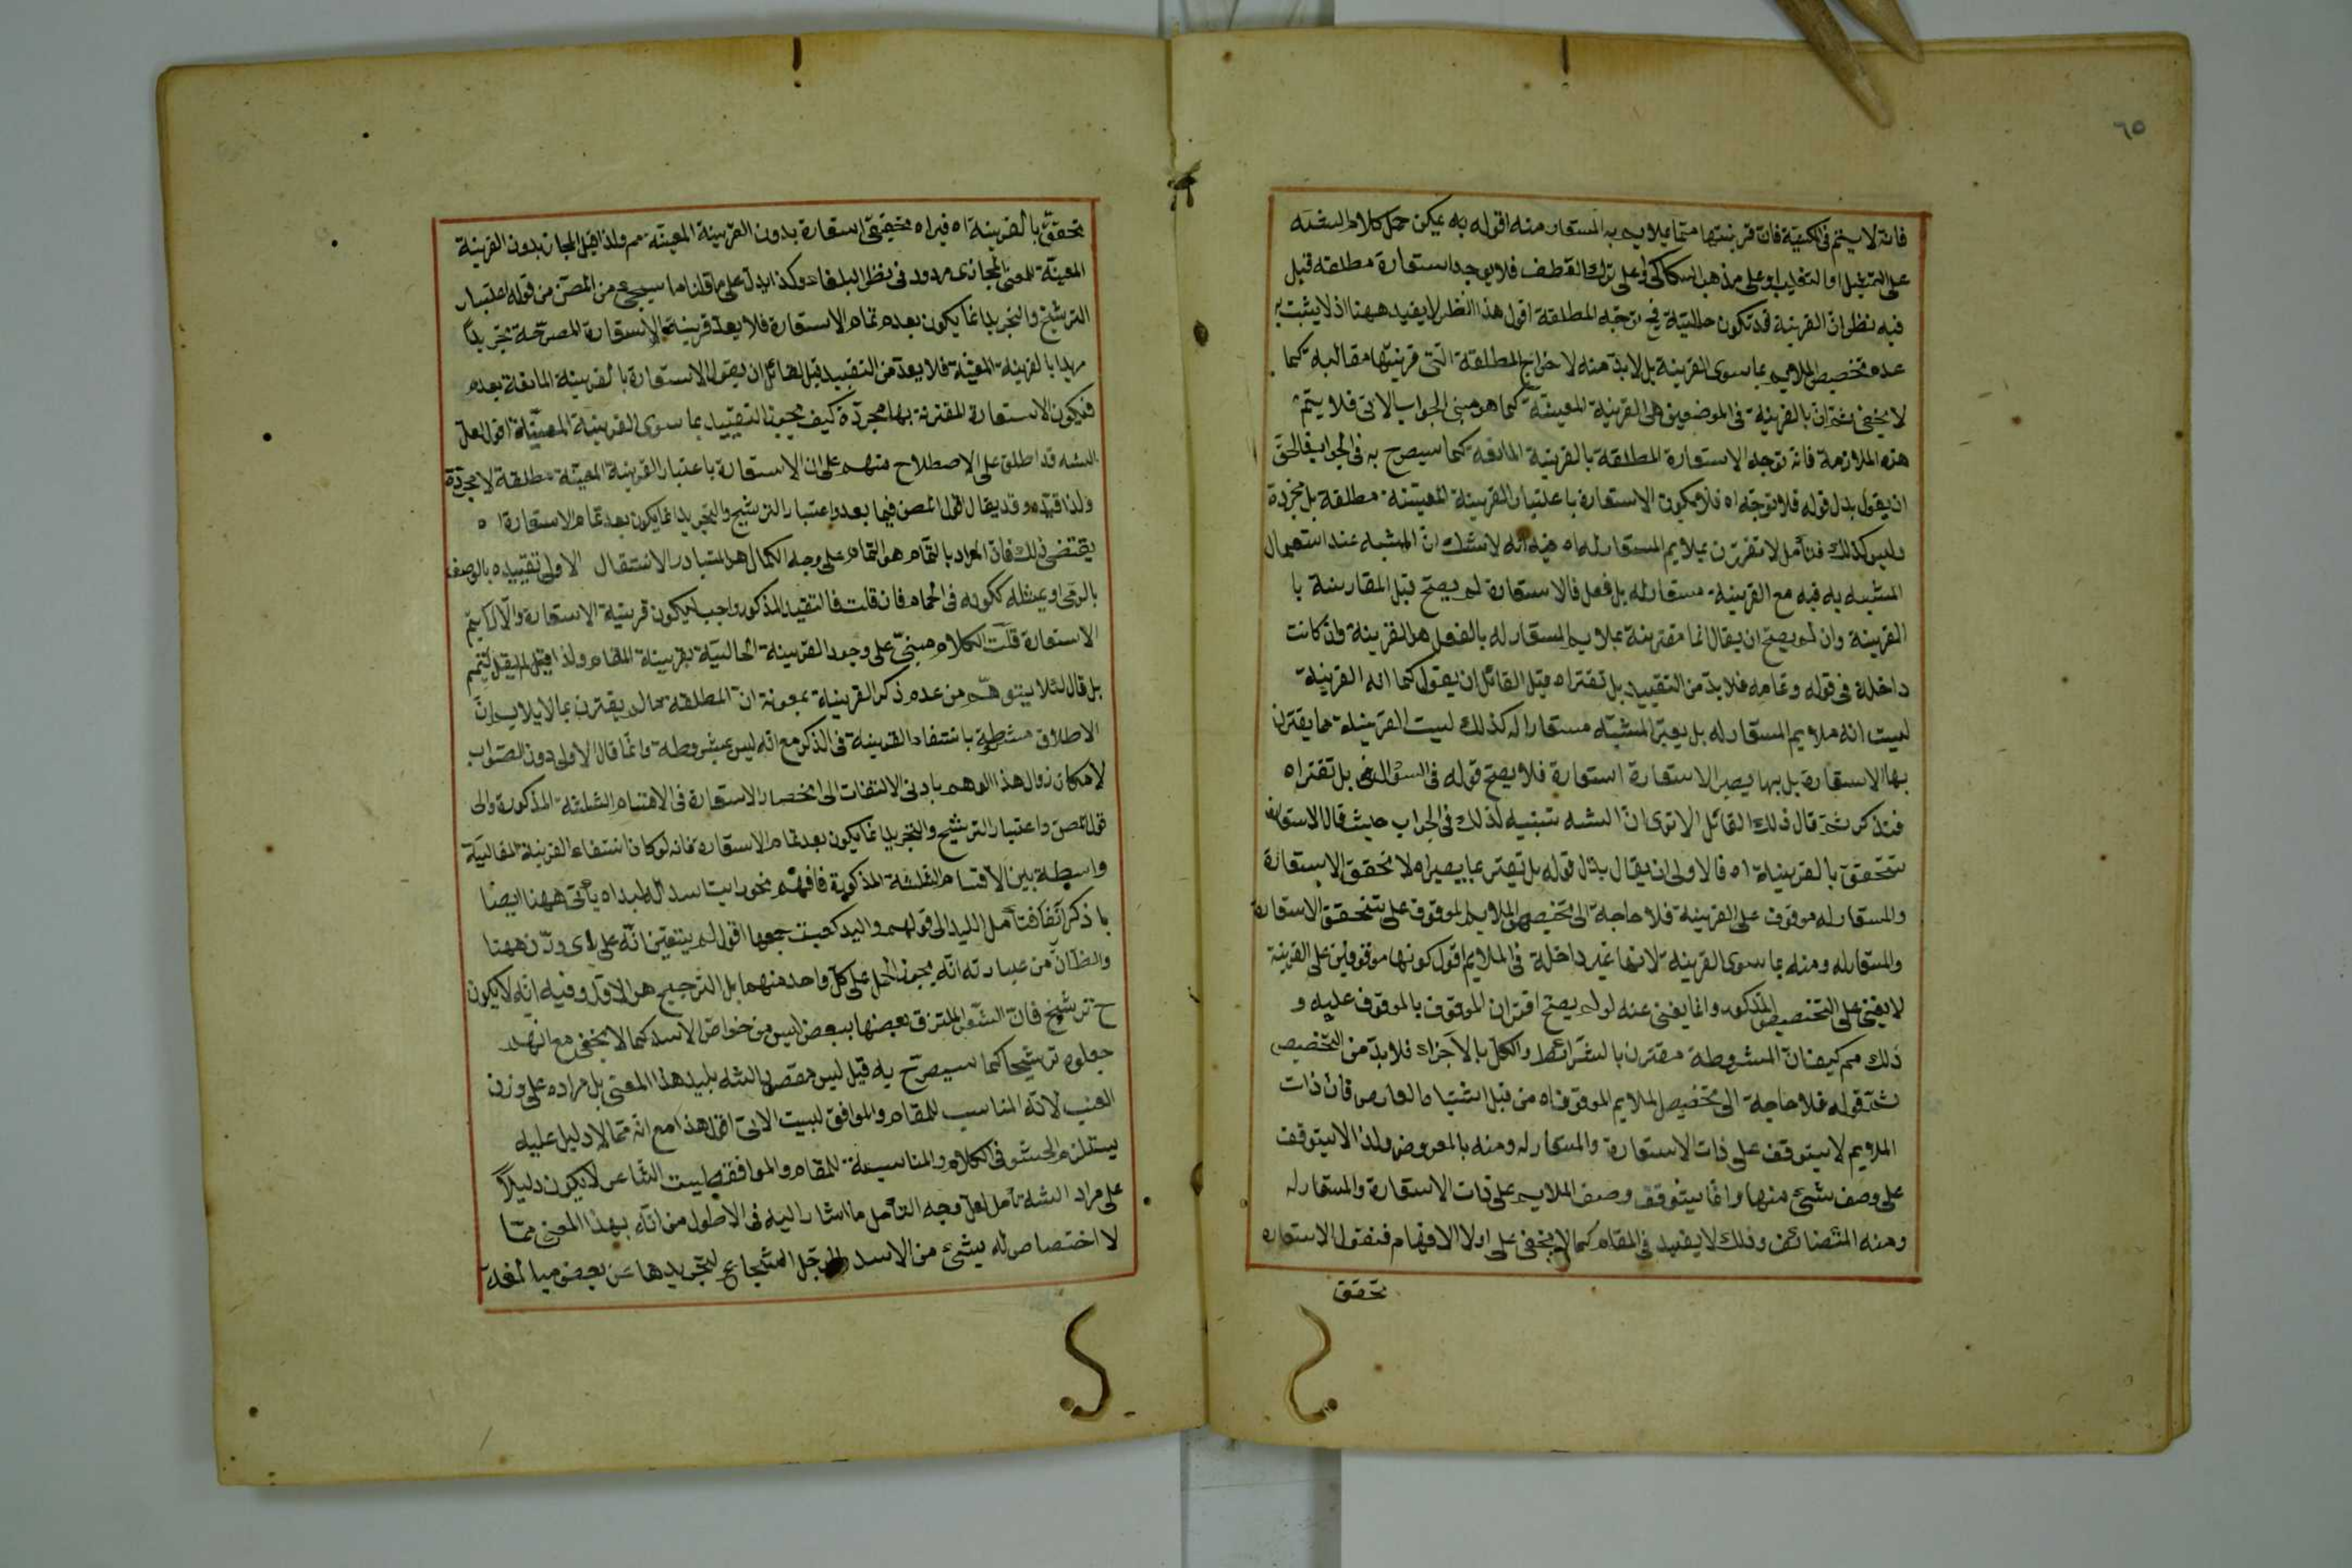 ٦٥
فانه لا يتم في المكنية فان قرينتها مما يلايم به المستعار منه اقوله به يمكن حمل كلام الشه
على التمثيل او التغليب او على مذهب السكاكي او على ترك العطف فلا يوجد استعارة مطلقة قيل
فيه نظر لان القرينة قد تكون حالية فح توجد المطلقة اقول هذا النظر لا يفيد ههنا اذ لا يثبت به
عدم تخصيص الملايم بما سوى القرينة بل لا بد منه لاخراج المطلقة التي قرينتها مقالية كما
لا يخفى ثم ان بالقرينة في الموضعين هي القرينة المعينة كما هو مبنى الجواب الاتي فلا يتم
هذه الملازمة فانه توجد الاستعارة المطلقة بالقرينة المانعة كما سيصرح به في الجواب فالحق
ان يقول بدل قوله فلا توجد اه فلا يكون الاستعارة باعتبار القرينة المعينة مطلقة بل مجردة
وليس كذلك فتأمل لا تقترن بملايم المستعار له اه فيه انه لا شك ان المشبه عند استعمال
المشبه به فيه مع القرينة مستعار له بل فعل فالاستعارة لم يصح قبل المقارنة با
القرينة وان لم يصح ان يقال انها مقترنة بملايم المستعار له بالفعل هل القرينة وان كانت
داخلة في قوله وتمامه فلا بد من التقييد بل تقتر اه قيل القائل ان يقول كما انه القرينة
ليست انه ملايم المستعار له بل يعبر المشبه مستعارا له كذلك ليست القرينة مما يقترن
بها الاستعارة بل بها يصير الاستعارة استعارة فلا يصح قوله في السؤال بل تقتر اه
فتذكر ثم قال ذلك القائل الا ترى ان الشه تنبيه لذلك في الجواب حيث قال الاستعارة
تتحقق بالقرينة اه فالاولى ان يقال بدل قوله بل تقتر بما يصير اه لا تحقق الاستعارة
والمستعار له موقوف على القرينة فلا حاجة الى تخصيص الملايم لموقوف على تتحقق الاستعارة
والمستعار له ومنه بما سوى القرينة لانها غير داخلة في الملايم اقول كونها موقوفين على القرينة
لا يغني على التخصيص المذكور وانما يغني عنه لو لم يصح اقتران الموقوف بالموقوف عليه و
ذلك مم كيف فان المشروطة مقترن بالشرائط والكل بالاجزاء فلا بد من التخصيص
ثم قوله فلا حاجة الى تخصيص الملايم الموقوف اه من قبل اشتباه العارض فان ذات
الملايم لا يتوقف على ذات الاستعارة والمستعار له ومنه بالمعروض ولذا لا يتوقف
على وصف شئ منها وانما يتوقف وصف الملايم على ذات الاستعارة والمستعار له
ومنه المتضائف وذلك لا يفيد في المقام كما لا يخفى على اولا الافهام فنقول الاستعاره
تحقق
تحقق بالقرينة اه فيراه تحقيق استعارة بدون القرينة المعينة مم ولذا قيل المجاز بدون القرينة
المعينة للمعنى المجازى مردود في نظر البلغاء وكذا يدل على ما قلنا ما سيجئ من المصن من قوله اعتبار
الترشيح والتجريد انما يكون بعد تمام الاستعارة فلا يعد قرينة الاستعارة المصرحة تجريدا
بالقرينة المعينة فلا يعد من التقييد قيل لقائل ان يقول الاستعارة بالقرينة المانعة بعدم
فيكون الاستعارة المقترنة بها مجردة كيف يجوز التقييد بما سوى القرينة المعينة اقول لعل
الشه قد اطلق على الاصطلاح منهم على ان الاستعارة باعتبار القرينة المعينة مطلقة لا مجردة
ولذا قيده وقد يقال قول المصن فيما بعد واعتبار الترشيح والتجريد انما يكون بعد تمام الاستعارة اه
يقتضى ذلك فان المراد بالتمام هو التمام على وجه الكمال هو المتبادر الانتقال الاولى تقييده بالوصف
بالرمى او بمثله ككونه في الحمام فان قلت فالتقييد المذكور واجب ليكون قرينة الاستعارة والا لم يتم
الاستعارة قلت الكلام مبني على وجود القرينة الحالية بقرينة المقام ولذا قيل لم يقل ليتم
بل قال لئلا يتوهم من عدم ذكر القرينة بمعونة ان المطلقة ما لم يقترن بما لا يلايم ان
الاطلاق مشروطة بانتفاء القرينة في الذكر مع انه ليس بمشروطة وانما قال الاولى دون الصواب
لامكان زوال هذا الوهم بادنى الالتفات الى انحصار الاستعارة في الاقسام الثلثة المذكورة والى
قول المصن واعتبار الترشيح والتجريد انما يكون بعد تمام الاستعارة فانه لو كان انتفاء القرينة المقالية
واسطة بين الاقسام الثلثة المذكورة فافهم نحو رايت اسدا له لبد اه يأتى ههنا ايضا
ما ذكر انفا فتأمل اللبد الى قولهم واللبد كعنب جمعها اقول لم يتعين انه على اى وزن ههنا
والظان من عبارته انه يجوز الحمل على كل واحد منهما بل الترجيح هو الاول وفيه انه لا يكون
ح ترشيح فان الشعر الملتزق بعضها ببعض ليس من خواص الاسد كما لا يخفى مع انهم
جعلوه ترشيحا كما سيصرح به قيل ليس مقصود الشه بلبد هذا المعنى بل مراده على وزن
العنب لانه المناسب للمقام والموافق لبيت الاتى اقول هذا مع انه مما لا دليل عليه
يستلزم الحشو في الكلام والمناسبة للمقام والموافقة لبيت الشاعر لا يكون دليلا
على مراد الشه تأمل لعل وجه التأمل ما اشار اليه في الاطول من انه بهذا المعنى مما
لا اختصاص له بشئ من الاسد والرجل الشجاع لتجريدها عن بعض مبالغة